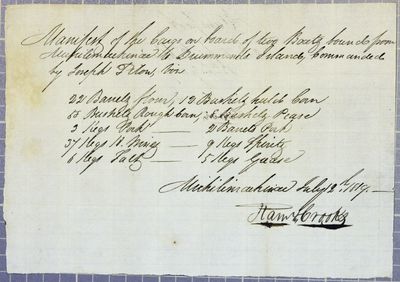 Manifest of the Cargo on board of two Boats bound from
Michilimackinac to Drummonds Island, Commanded
by Joseph Pelon, Viz
22 Barrels flour, 12 Bushels hulld Corn
Bushels Rough Corn, 8 Bushels Pease
3 Kegs Pork — 2 Barrels Pork
37 Kegs H. Wines — 9 Kegs Spirits
6 Kegs Salt — 5 Kegs Grease
Michilimackinac July 1817.
Ram. Crooks